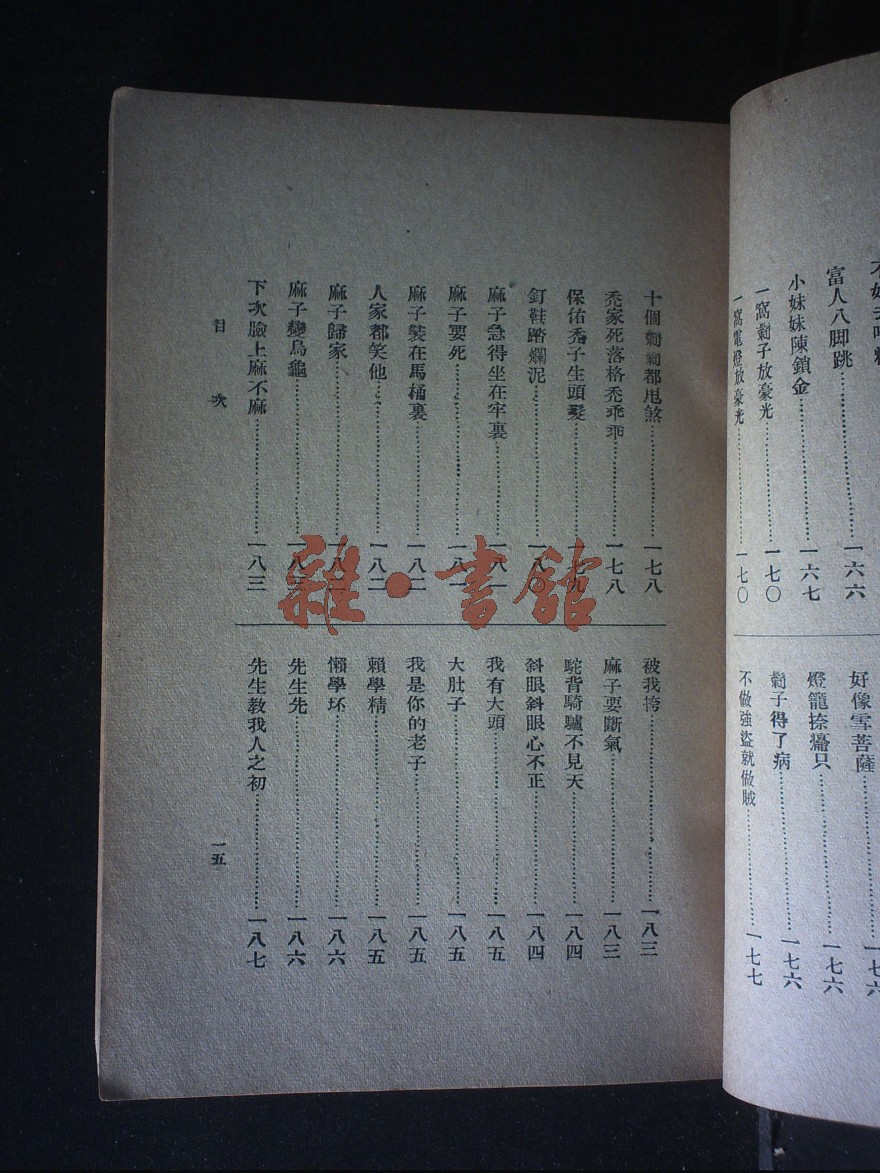 富人八脚跳……一六六
小妹妹陳鎖金……一六七
一窩子放豪光……一七〇
一窩電燈放豪光……一七〇
好像雪菩薩……一七六
燈籠捺癟只……一七六
子得了病……一七六
不做強盜就做賊……一七七
十個都甩煞……一七八
禿家死落格禿乖乖……一七八
保佑禿子生頭髮……一七九
釘鞋踏爛泥……一八〇
麻子急得坐在牢裏……一八一
麻子要死……一八一
麻子裝在馬桶裏……一八二
人家都笑他……一八二
麻子歸家……一八二
麻子變烏龜……一八三
下次臉上麻不麻……一八三
被我挎……一八三
麻子要斷氣……一八三
駝背騎驢不見天……一八四
斜眼斜眼心不正……一八四
我有大頭……一八五
大肚子……一八五
我是你的老子……一八五
賴學精……一八五
懶學坯……一八六
先生先……一八六
先生教我人之初……一八七
目次
一五
雜·書館